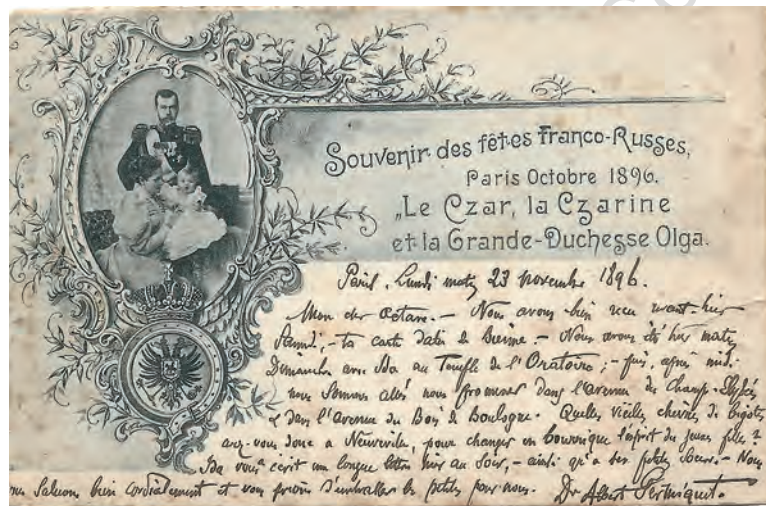 Souvenir des fêtes Franco-Russes,
Paris Octobre 1896.
„Le Czar, la Czarine
et la Grande-Duchesse Olga.
Paris, Lundi matin 23 novembre 1896.
Mon cher Octave. — Nous avons bien reçu avant-hier
Samedi, — ta carte datée de Bienne — Nous avons été hier matin
Dimanche avec Ida au Temple de l'Oratoire ; — puis, après midi
nous sommes allés nous promener dans l'avenue des Champs-Elysées
et dans l'avenue du Bois de Boulogne. Quelles vieilles chèvres de bigotes
avez-vous donc à Neuveville, pour changer en l'esprit des jeunes filles ?
Ida vous a écrit une longue lettre hier au soir, — ainsi qu'à ses petites sœurs. — Nous
vous saluons bien cordialement et vous prions d'embrasser les petites pour nous. Dr Albert